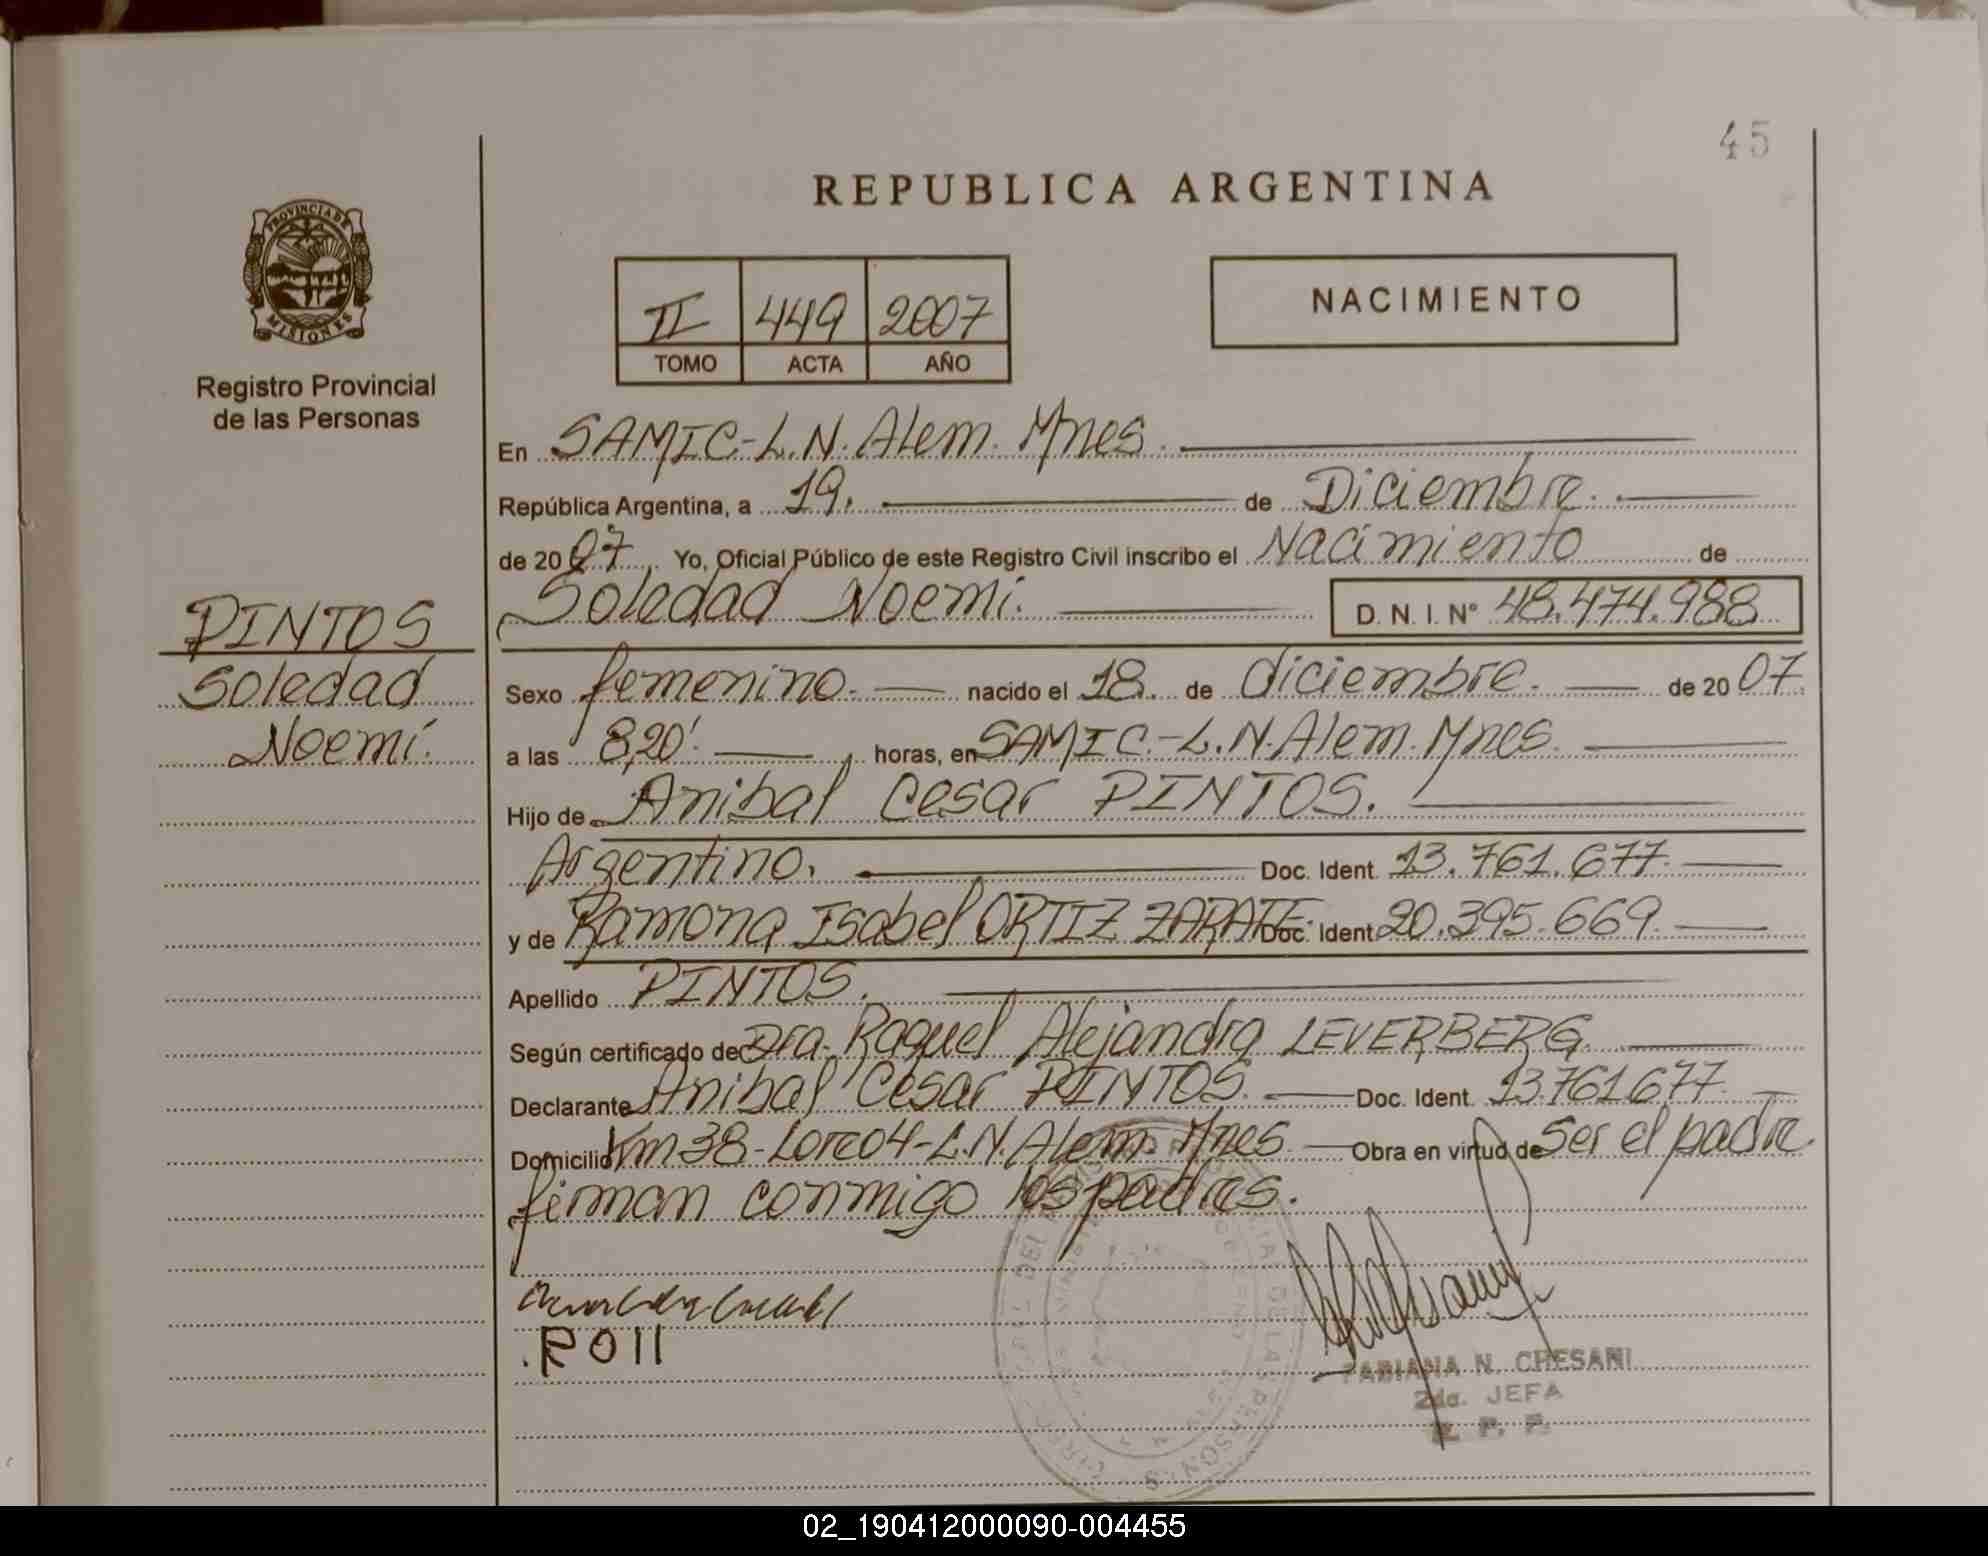 45
REPUBLICA ARGENTINA
PROVINCIA DE
MISIONES
Registro Provincial
de las Personas
II 449 2007
TOMO ACTA AÑO
NACIMIENTO
En SAMIC-L.N. Alem. Mnes.
República Argentina, a 19. de Diciembre.
de 2007. Yo, Oficial Público de este Registro Civil inscribo el Nacimiento de
Soledad Noemí. D. N. I. Nº 48.474.988
PINTOS
Soledad
Noemí.
Sexo femenino. nacido el 18. de diciembre. de 2007.
a las 8,20'. horas, en SAMIC.-L.N. Alem. Mnes.
Hijo de Anibal Cesar PINTOS.
Argentino. Doc. Ident. 13.761.677.
y de Ramona Isabel ORTIZ ZARATE. Doc. Ident. 20.395.669.
Apellido PINTOS.
Según certificado de Dra. Raquel Alejandra LEVERBERG.
Declarante Anibal Cesar PINTOS. Doc. Ident. 13.761.677.
Domicilio Km 38-Lote 04-L.N. Alem. Mnes. Obra en virtud de Ser el padre
firman conmigo los padres.
FABIANA N. CHESANI
2da. JEFA
R. P. P.
02_190412000090-004455